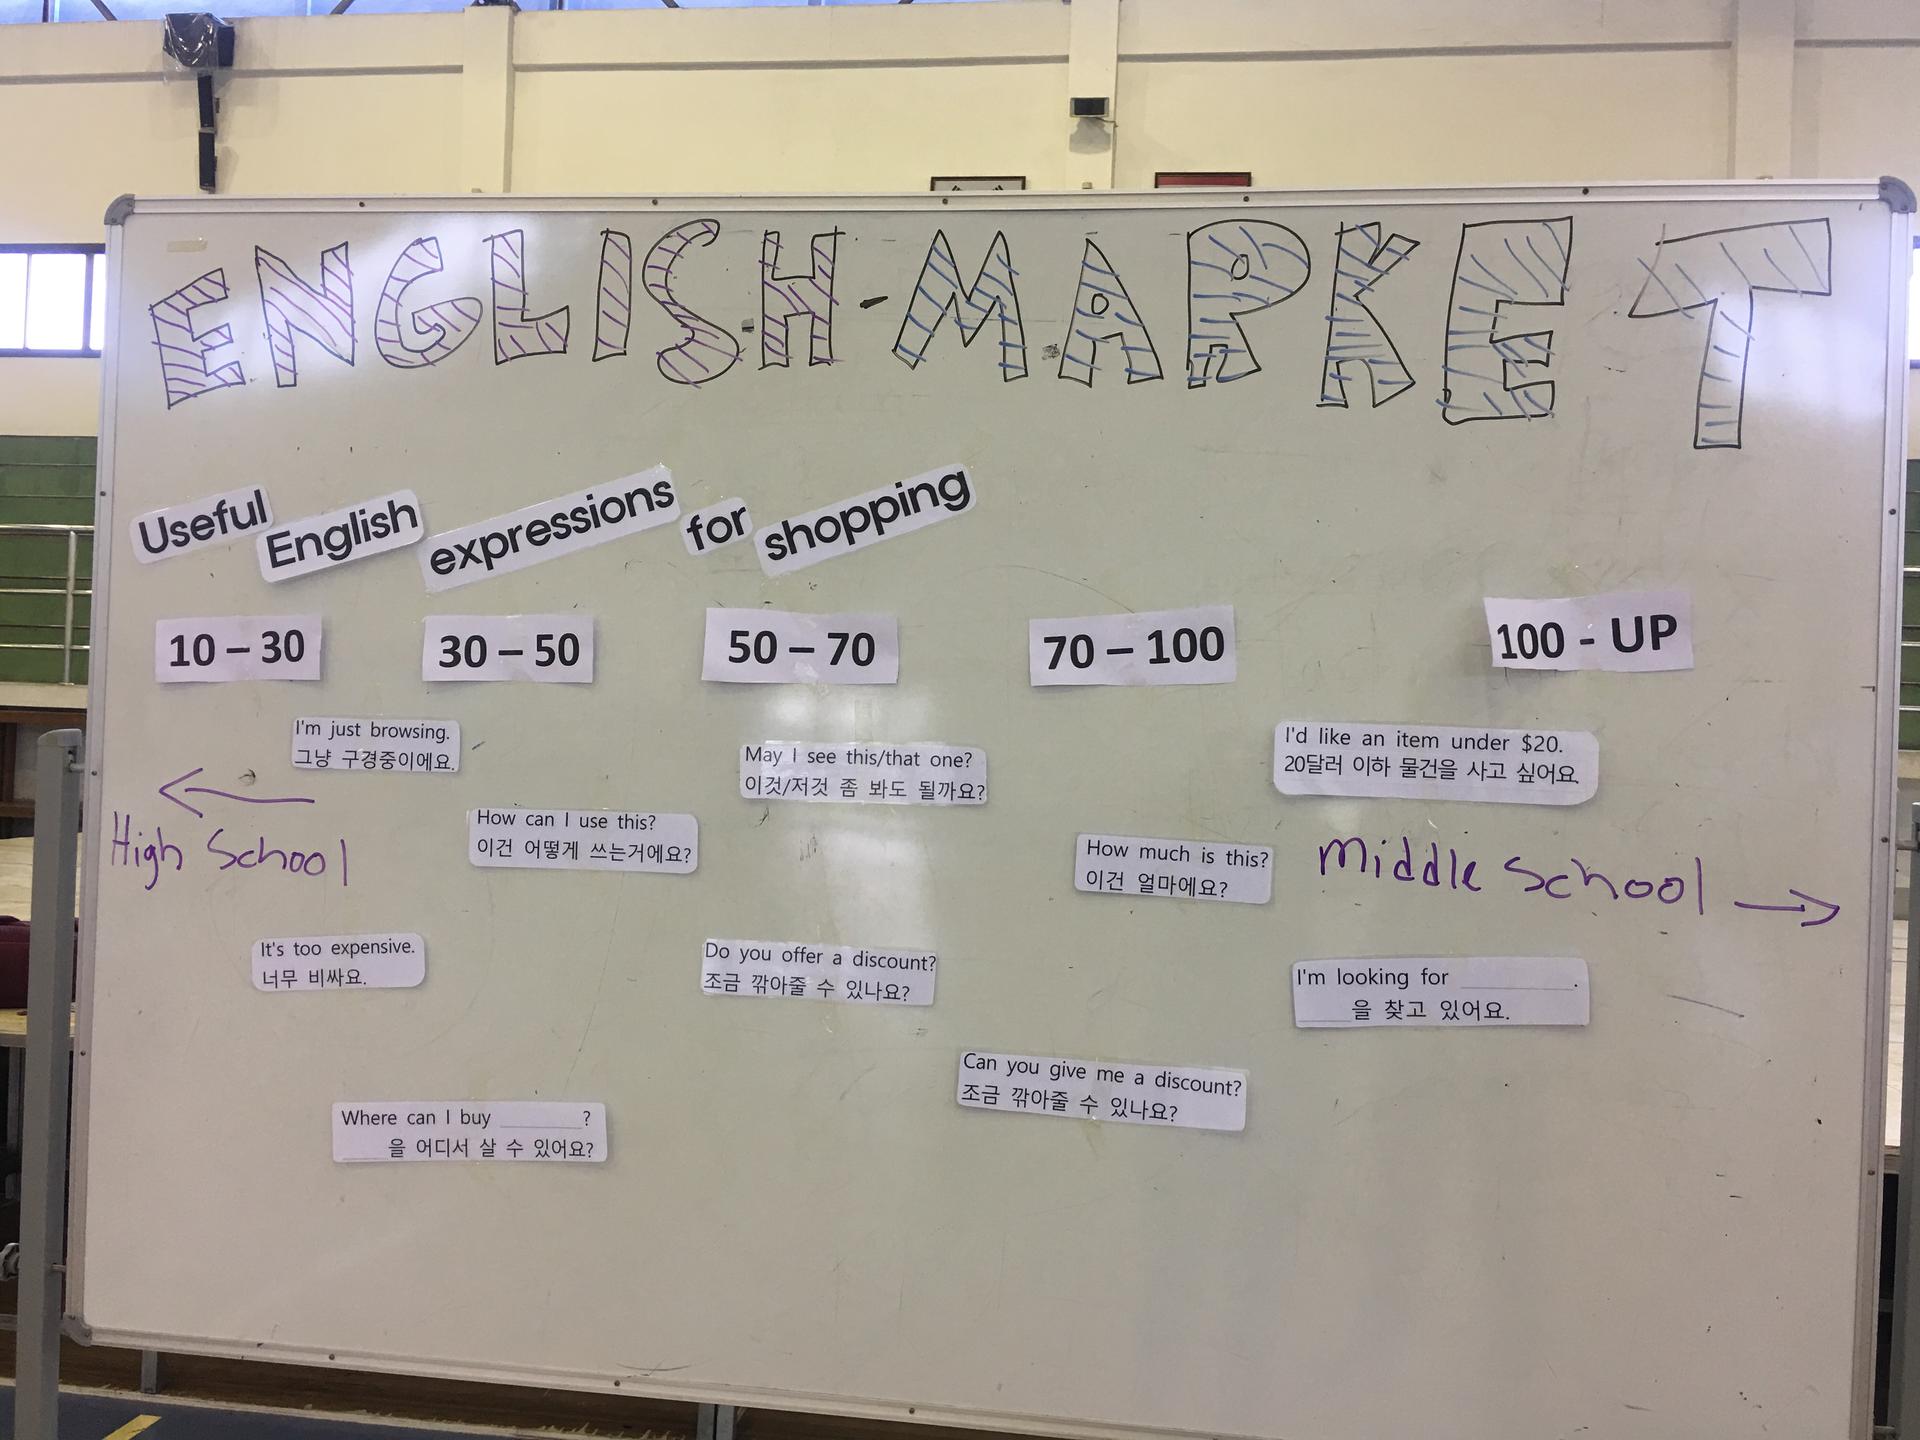 ENGLISH-MARKET
Useful English expressions for shopping
10 – 30
30 – 50
50 – 70
70 – 100
100 - UP
I'm just browsing.
그냥 구경중이에요.
May I see this/that one?
이것/저것 좀 봐도 될까요?
I'd like an item under $20.
20달러 이하 물건을 사고 싶어요.
High School
How can I use this?
이건 어떻게 쓰는거에요?
How much is this?
이건 얼마에요?
Middle School
It's too expensive.
너무 비싸요.
Do you offer a discount?
조금 깎아줄 수 있나요?
I'm looking for ________.
____을 찾고 있어요.
Can you give me a discount?
조금 깎아줄 수 있나요?
Where can I buy ________?
____을 어디서 살 수 있어요?